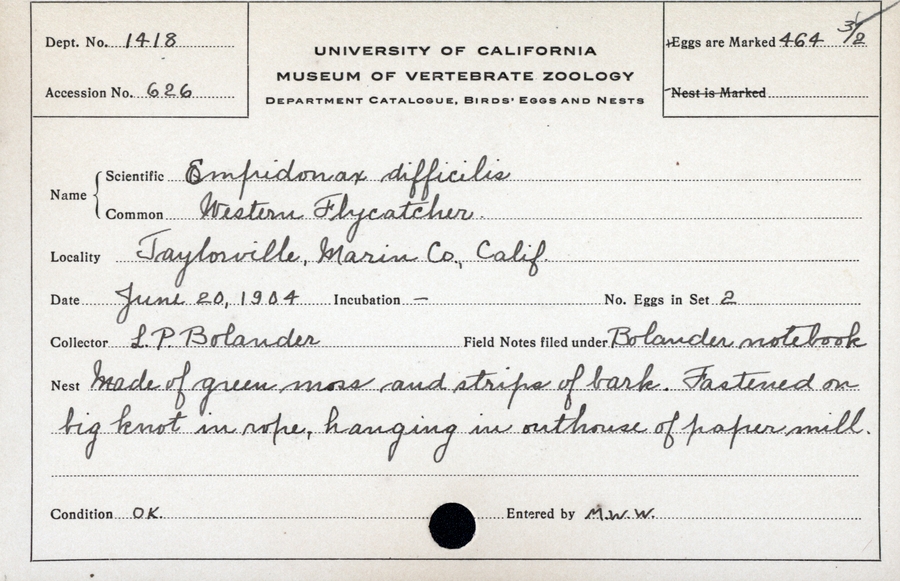 Dept. No. 1418
Accession No. 626
UNIVERSITY OF CALIFORNIA
MUSEUM OF VERTEBRATE ZOOLOGY
DEPARTMENT CATALOGUE, BIRDS' EGGS AND NESTS
Eggs are Marked 464 3/2
Nest is Marked
Name Scientific Empidonax difficilis
Common Western Flycatcher.
Locality Taylorville, Marin Co., Calif.
Date June 20, 1904 Incubation — No. Eggs in Set 2
Collector L. P. Bolander Field Notes filed under Bolander notebook
Nest Made of green moss and strips of bark. Fastened on
big knot in rope, hanging in outhouse of paper mill.
Condition OK. Entered by M.W.W.